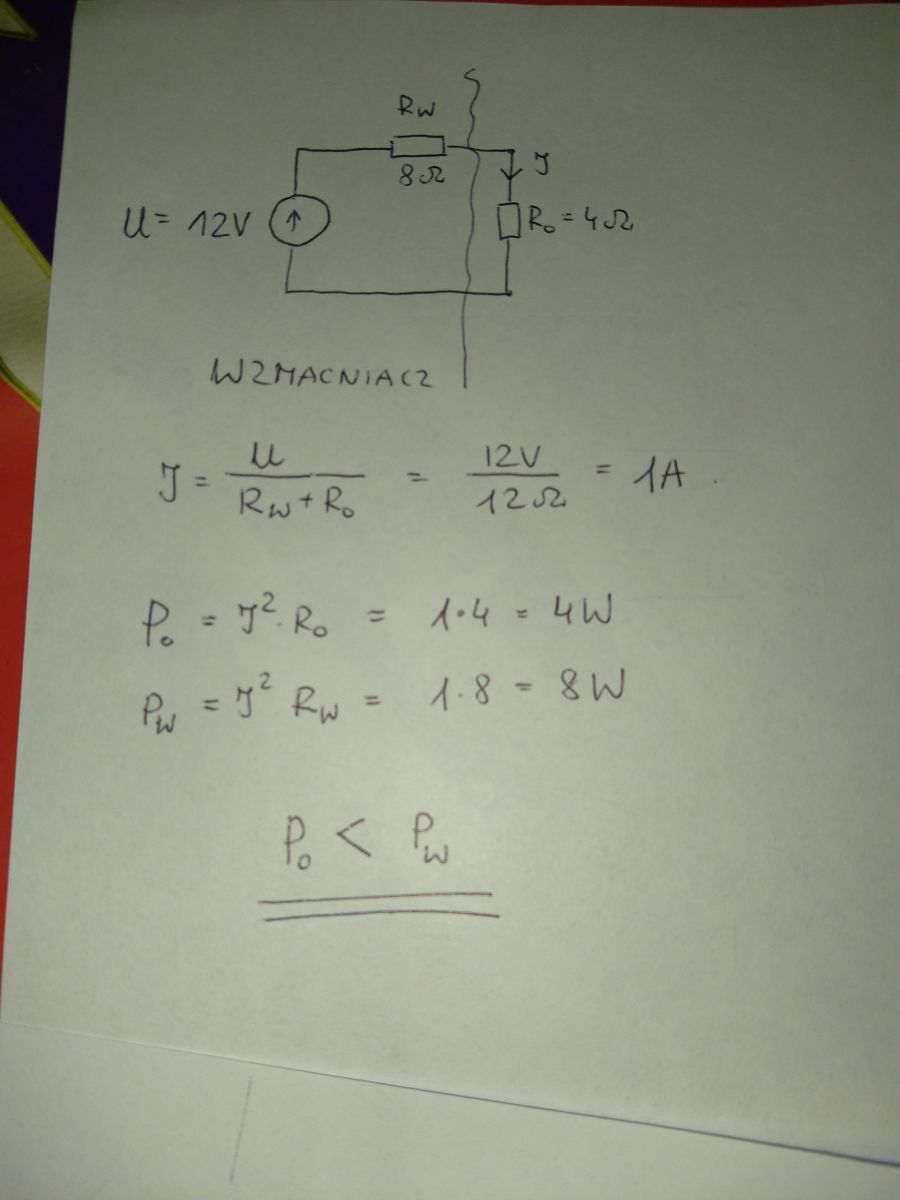 Rw
8Ω
J
U= 12V
R₀ = 4Ω
WZMACNIACZ
J = U / (Rw + R₀) = 12V / 12Ω = 1A .
P₀ = J² · R₀ = 1·4 = 4W
Pw = J² Rw = 1·8 = 8W
P₀ < Pw